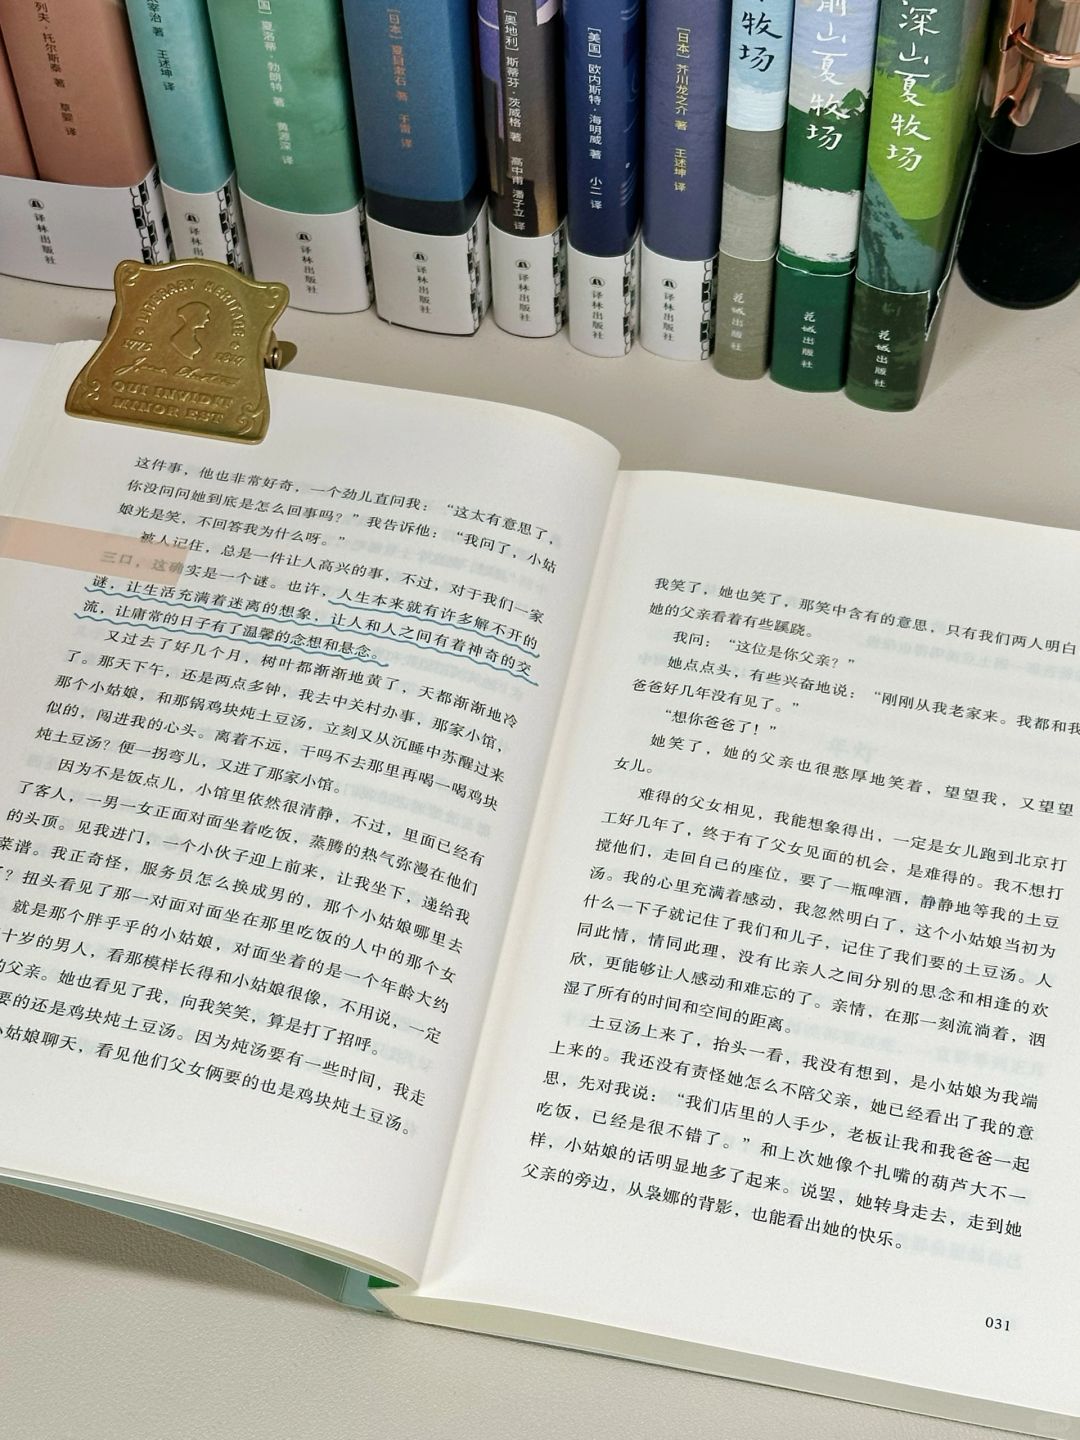 列夫·托尔斯泰 著 草婴 译
译林出版社
太宰治 著 王述坤 译
译林出版社
国］夏洛蒂·勃朗特 著 黄源深 译
译林出版社
［日本］夏目漱石 著 于雷 译
译林出版社
［奥地利］斯蒂芬·茨威格 著 高中甫 潘子立 译
译林出版社
［美国］欧内斯特·海明威 著 小二 译
译林出版社
［日本］芥川龙之介 著 王述坤 译
译林出版社
牧场
花城出版社
前山夏牧场
花城出版社
深山夏牧场
花城出版社
LITERARY HERITAGE
1775 1817
QUI INVIDET
MINOR EST
这件事，他也非常好奇，一个劲儿直问我：“这太有意思了，
你没问问她到底是怎么回事吗？”我告诉他：“我问了，小姑
娘光是笑，不回答我为什么呀。”
被人记住，总是一件让人高兴的事，不过，对于我们一家
三口，这确实是一个谜。也许，人生本来就有许多解不开的
谜，让生活充满着迷离的想象，让人和人之间有着神奇的交
流，让庸常的日子有了温馨的念想和悬念。
又过去了好几个月，树叶都渐渐地黄了，天都渐渐地冷
了。那天下午，还是两点多钟，我去中关村办事，那家小馆，
那个小姑娘，和那锅鸡块炖土豆汤，立刻又从沉睡中苏醒过来
似的，闯进我的心头。离着不远，干吗不去那里再喝一喝鸡块
炖土豆汤？便一拐弯儿，又进了那家小馆。
因为不是饭点儿，小馆里依然很清静，不过，里面已经有
了客人，一男一女正面对面坐着吃饭，蒸腾的热气弥漫在他们
的头顶。见我进门，一个小伙子迎上前来，让我坐下，递给我
菜谱。我正奇怪，服务员怎么换成男的，那个小姑娘哪里去
？扭头看见了那一对面对面坐在那里吃饭的人中的那个女
就是那个胖乎乎的小姑娘，对面坐着的是一个年龄大约
十岁的男人，看那模样长得和小姑娘很像，不用说，一定
的父亲。她也看见了我，向我笑笑，算是打了招呼。
要的还是鸡块炖土豆汤。因为炖汤要有一些时间，我走
小姑娘聊天，看见他们父女俩要的也是鸡块炖土豆汤。
我笑了，她也笑了，那笑中含有的意思，只有我们两人明白
她的父亲看着有些蹊跷。
我问：“这位是你父亲？”
她点点头，有些兴奋地说：“刚刚从我老家来。我都和我
爸爸好几年没有见了。”
“想你爸爸了！”
她笑了，她的父亲也很憨厚地笑着，望望我，又望望
女儿。
难得的父女相见，我能想象得出，一定是女儿跑到北京打
工好几年了，终于有了父女见面的机会，是难得的。我不想打
搅他们，走回自己的座位，要了一瓶啤酒，静静地等我的土豆
汤。我的心里充满着感动，我忽然明白了，这个小姑娘当初为
什么一下子就记住了我们和儿子，记住了我们要的土豆汤。人
同此情，情同此理，没有比亲人之间分别的思念和相逢的欢
欣，更能够让人感动和难忘的了。亲情，在那一刻流淌着，洇
湿了所有的时间和空间的距离。
土豆汤上来了，抬头一看，我没有想到，是小姑娘为我端
上来的。我还没有责怪她怎么不陪父亲，她已经看出了我的意
思，先对我说：“我们店里的人手少，老板让我和我爸爸一起
吃饭，已经是很不错了。”和上次她像个扎嘴的葫芦大不一
样，小姑娘的话明显地多了起来。说罢，她转身走去，走到她
父亲的旁边，从袅娜的背影，也能看出她的快乐。
031